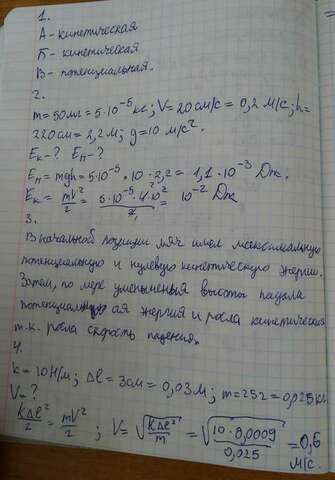 1.
А - кинетическая
Б - кинетическая
В - потенциальная.
2.
m = 50мг = 5·10⁻⁵ кг; V = 20 см/с = 0,2 м/с; h =
220см = 2,2 м; g = 10 м/с².
Eк - ? Eп - ?
Eп = mgh = 5·10⁻⁵ · 10 · 2,2 = 1,1 · 10⁻³ Дж.
Eк = mV²/2 = 5·10⁻⁵·4·10²/2 = 10⁻² Дж
3.
В начальной позиции мяч имел максимальную
потенциальную и нулевую кинетическую энергии.
Затем, по мере уменьшения высоты падала
потенциальная энергия и росла кинетическая
т.к. росла скорость падения.
4.
k = 10 Н/м; Δl = 3см = 0,03 м; m = 25г = 0,025 кг.
V - ?
kΔl²/2 = mV²/2 ; V = √(kΔl²/m) = √(10 · 0,0009/0,025) = 0,6
м/с.